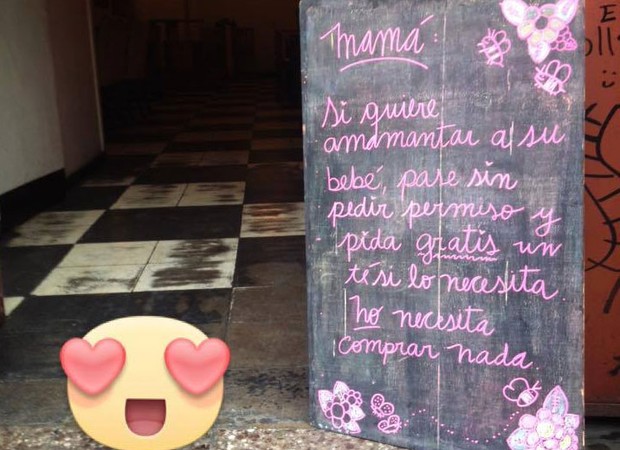 mamá:
Si quiere
amamantar a su
bebé, pase sin
pedir permiso y
pida gratis un
té si lo necesita
no necesita
comprar nada.